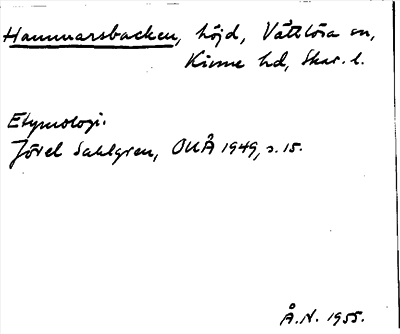 Hammarsbacken, höjd, Vättlösa sn,
Kinne hd, Skar. l.
Etymologi.
Jöred Sahlgren, ONÅ 1949, s. 15.
Å.N. 1955.